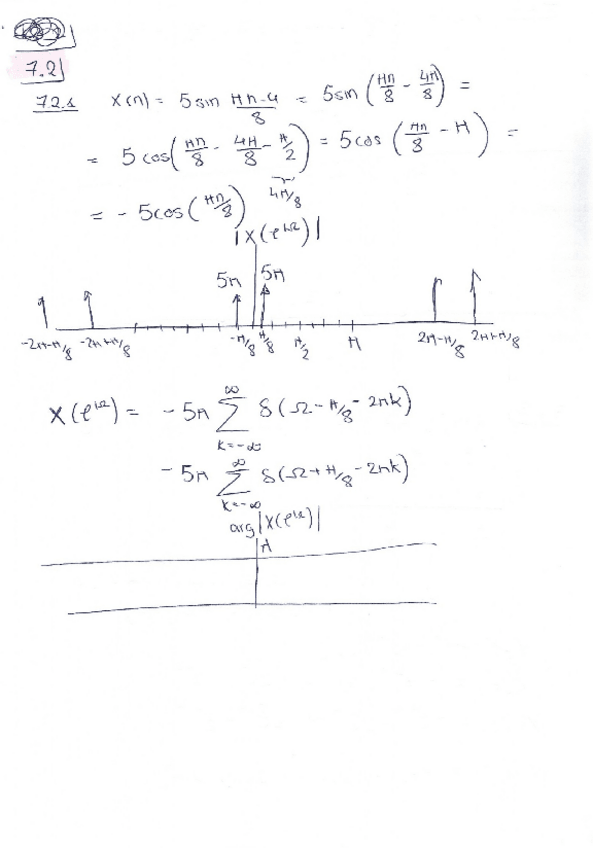 7.2
7.2.1 x(n) = 5 sin (πn-4)/8 = 5 sin (πn/8 - 4π/8) =
= 5 cos(πn/8 - 4π/8 - π/2) = 5 cos (πn/8 - π) =
4π/8
= - 5 cos(πn/8)
|X(e^jΩ)|
5π 5π
-2π-π/8 -2π+π/8 -π/8 π/8 π/2 π 2π-π/8 2π+π/8
X(e^jΩ) = - 5π ∑ k=-∞ ∞ δ(Ω - π/8 - 2πk)
- 5π ∑ k=-∞ ∞ δ(Ω + π/8 - 2πk)
arg|X(e^jΩ)|
π